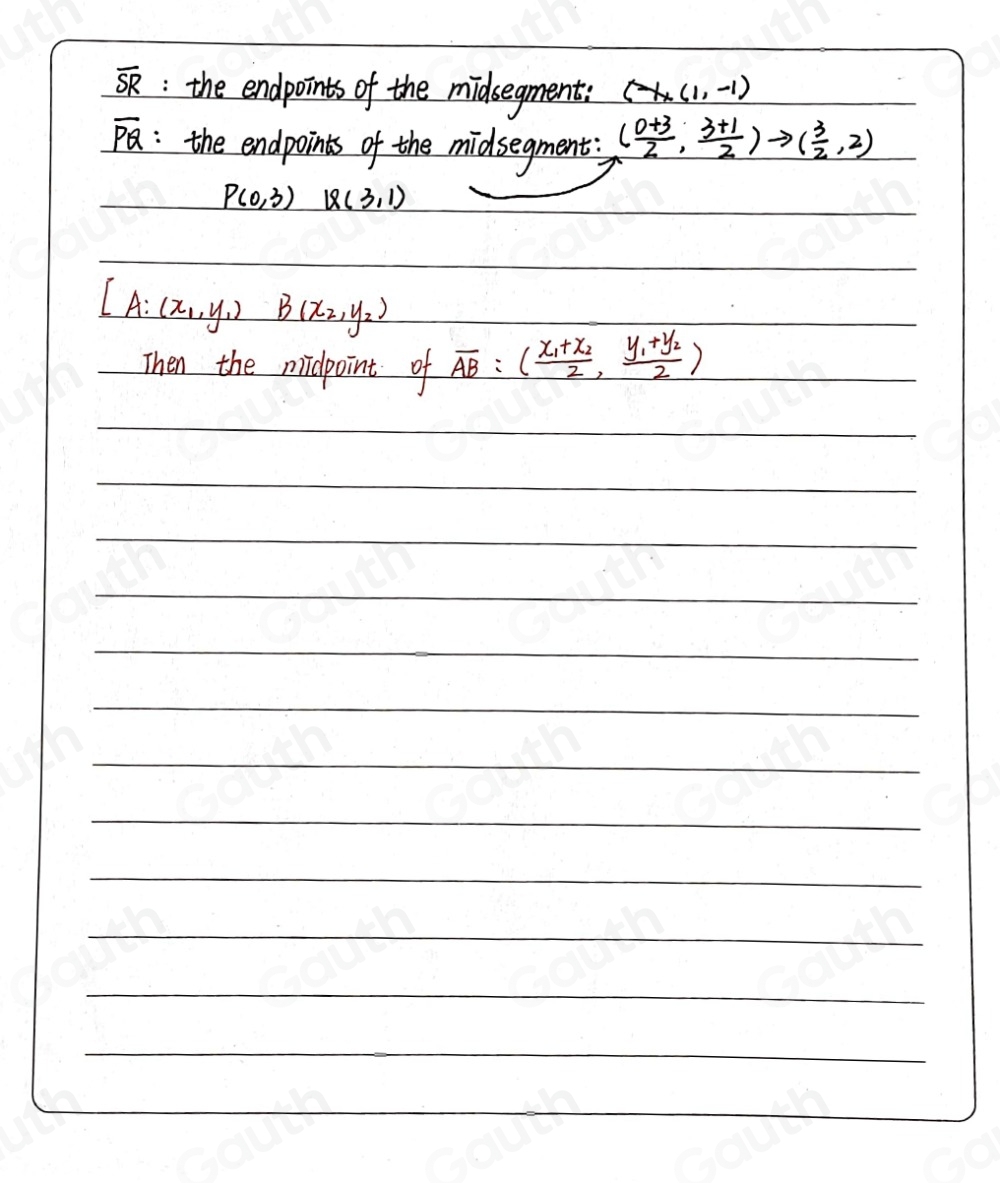 S̅R̅ : the endpoints of the midsegment: (1, -1)
P̅Q̅ : the endpoints of the midsegment: ( (0+3)/2 , (3+1)/2 ) → ( 3/2 , 2)
P(0,3) Q(3,1)
[ A: (x₁, y₁) B(x₂, y₂)
Then the midpoint of A̅B̅ : ( (x₁+x₂)/2 , (y₁+y₂)/2 )